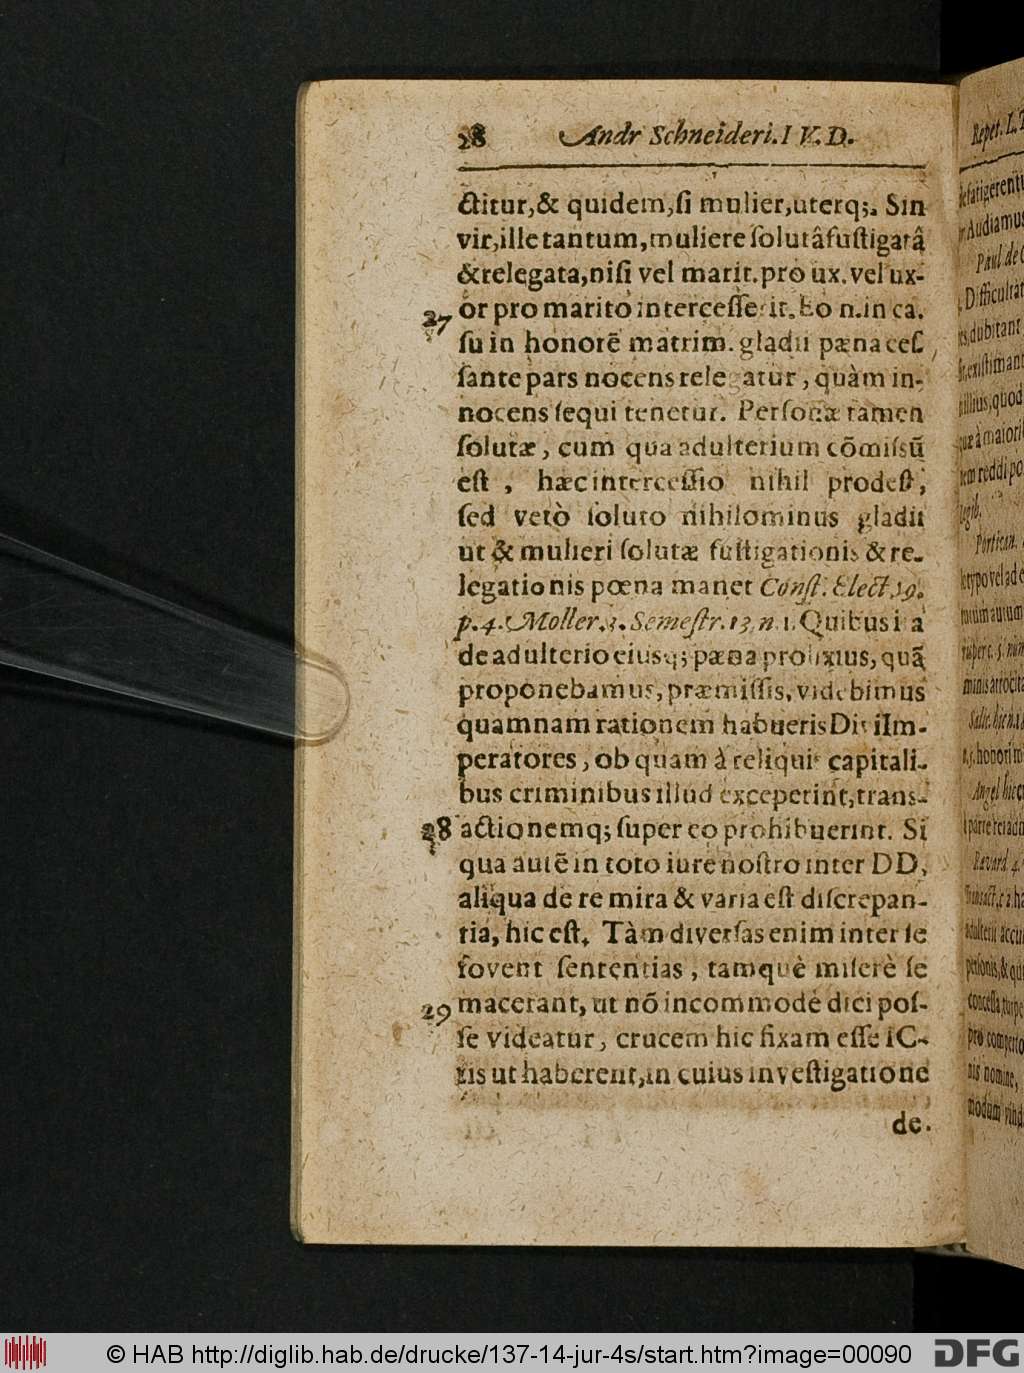 28 Andr Schneideri. I V. D.
ctitur, & quidem, ſi mulier, uterq;. Sin
vir, ille tantum, muliere ſolutâ fuſtigatâ
& relegata, niſi vel marit. pro ux. vel ux-
27 or pro marito interceſſerit. Eo n. in ca.
ſu in honorē matrim. gladii pæna ceſ
ſante pars nocens relegatur, quàm in-
nocens ſequi tenetur. Perſonæ tamen
ſolutæ, cum qua adulterium cōmiſsū
eſt, hæc interceſſio nihil prodeſt,
ſed verò ſoluto nihilominus gladii
ut & mulieri ſolutæ fuſtigationis & re-
legationis pœna manet Conſt. Elect. 19.
p. 4. Moller. 3. Semeſtr. 13. n. 1. Quibus
de adulterio eiusq; pæna prolixius, quā
proponebamus, præmiſſis, videbimus
quamnam rationem habueris Divi Im-
peratores, ob quam à reliquis capitali-
bus criminibus illud exceperint, trans-
28 actionemq; ſuper eo prohibuerint. Si
qua autē in toto iure noſtro inter DD,
aliqua de re mira & varia eſt diſcrepan-
tia, hic eſt. Tàm diverſas enim inter ſe
fovent ſententias, tamquè miſerè ſe
29 macerant, ut nō incommodè dici poſ-
ſe videatur, crucem hic fixam eſſe iC-
tis ut haberent, in cuius inveſtigatione
de.
Repet. L.
defatigerent
Audiamus
Paul de
Difficultat
dubitant
exiſtimant
illius, quod
à maiori
reddi po
Portican.
typo vel ad
minis atrocita
honori
Angel hic
parte
Revard. 4.
Transact.
adulterii accu
perſonis, & qui
conceſſa, turpe
pro comperto
nis nomine,
modum
© HAB http://diglib.hab.de/drucke/137-14-jur-4s/start.htm?image=00090 DFG